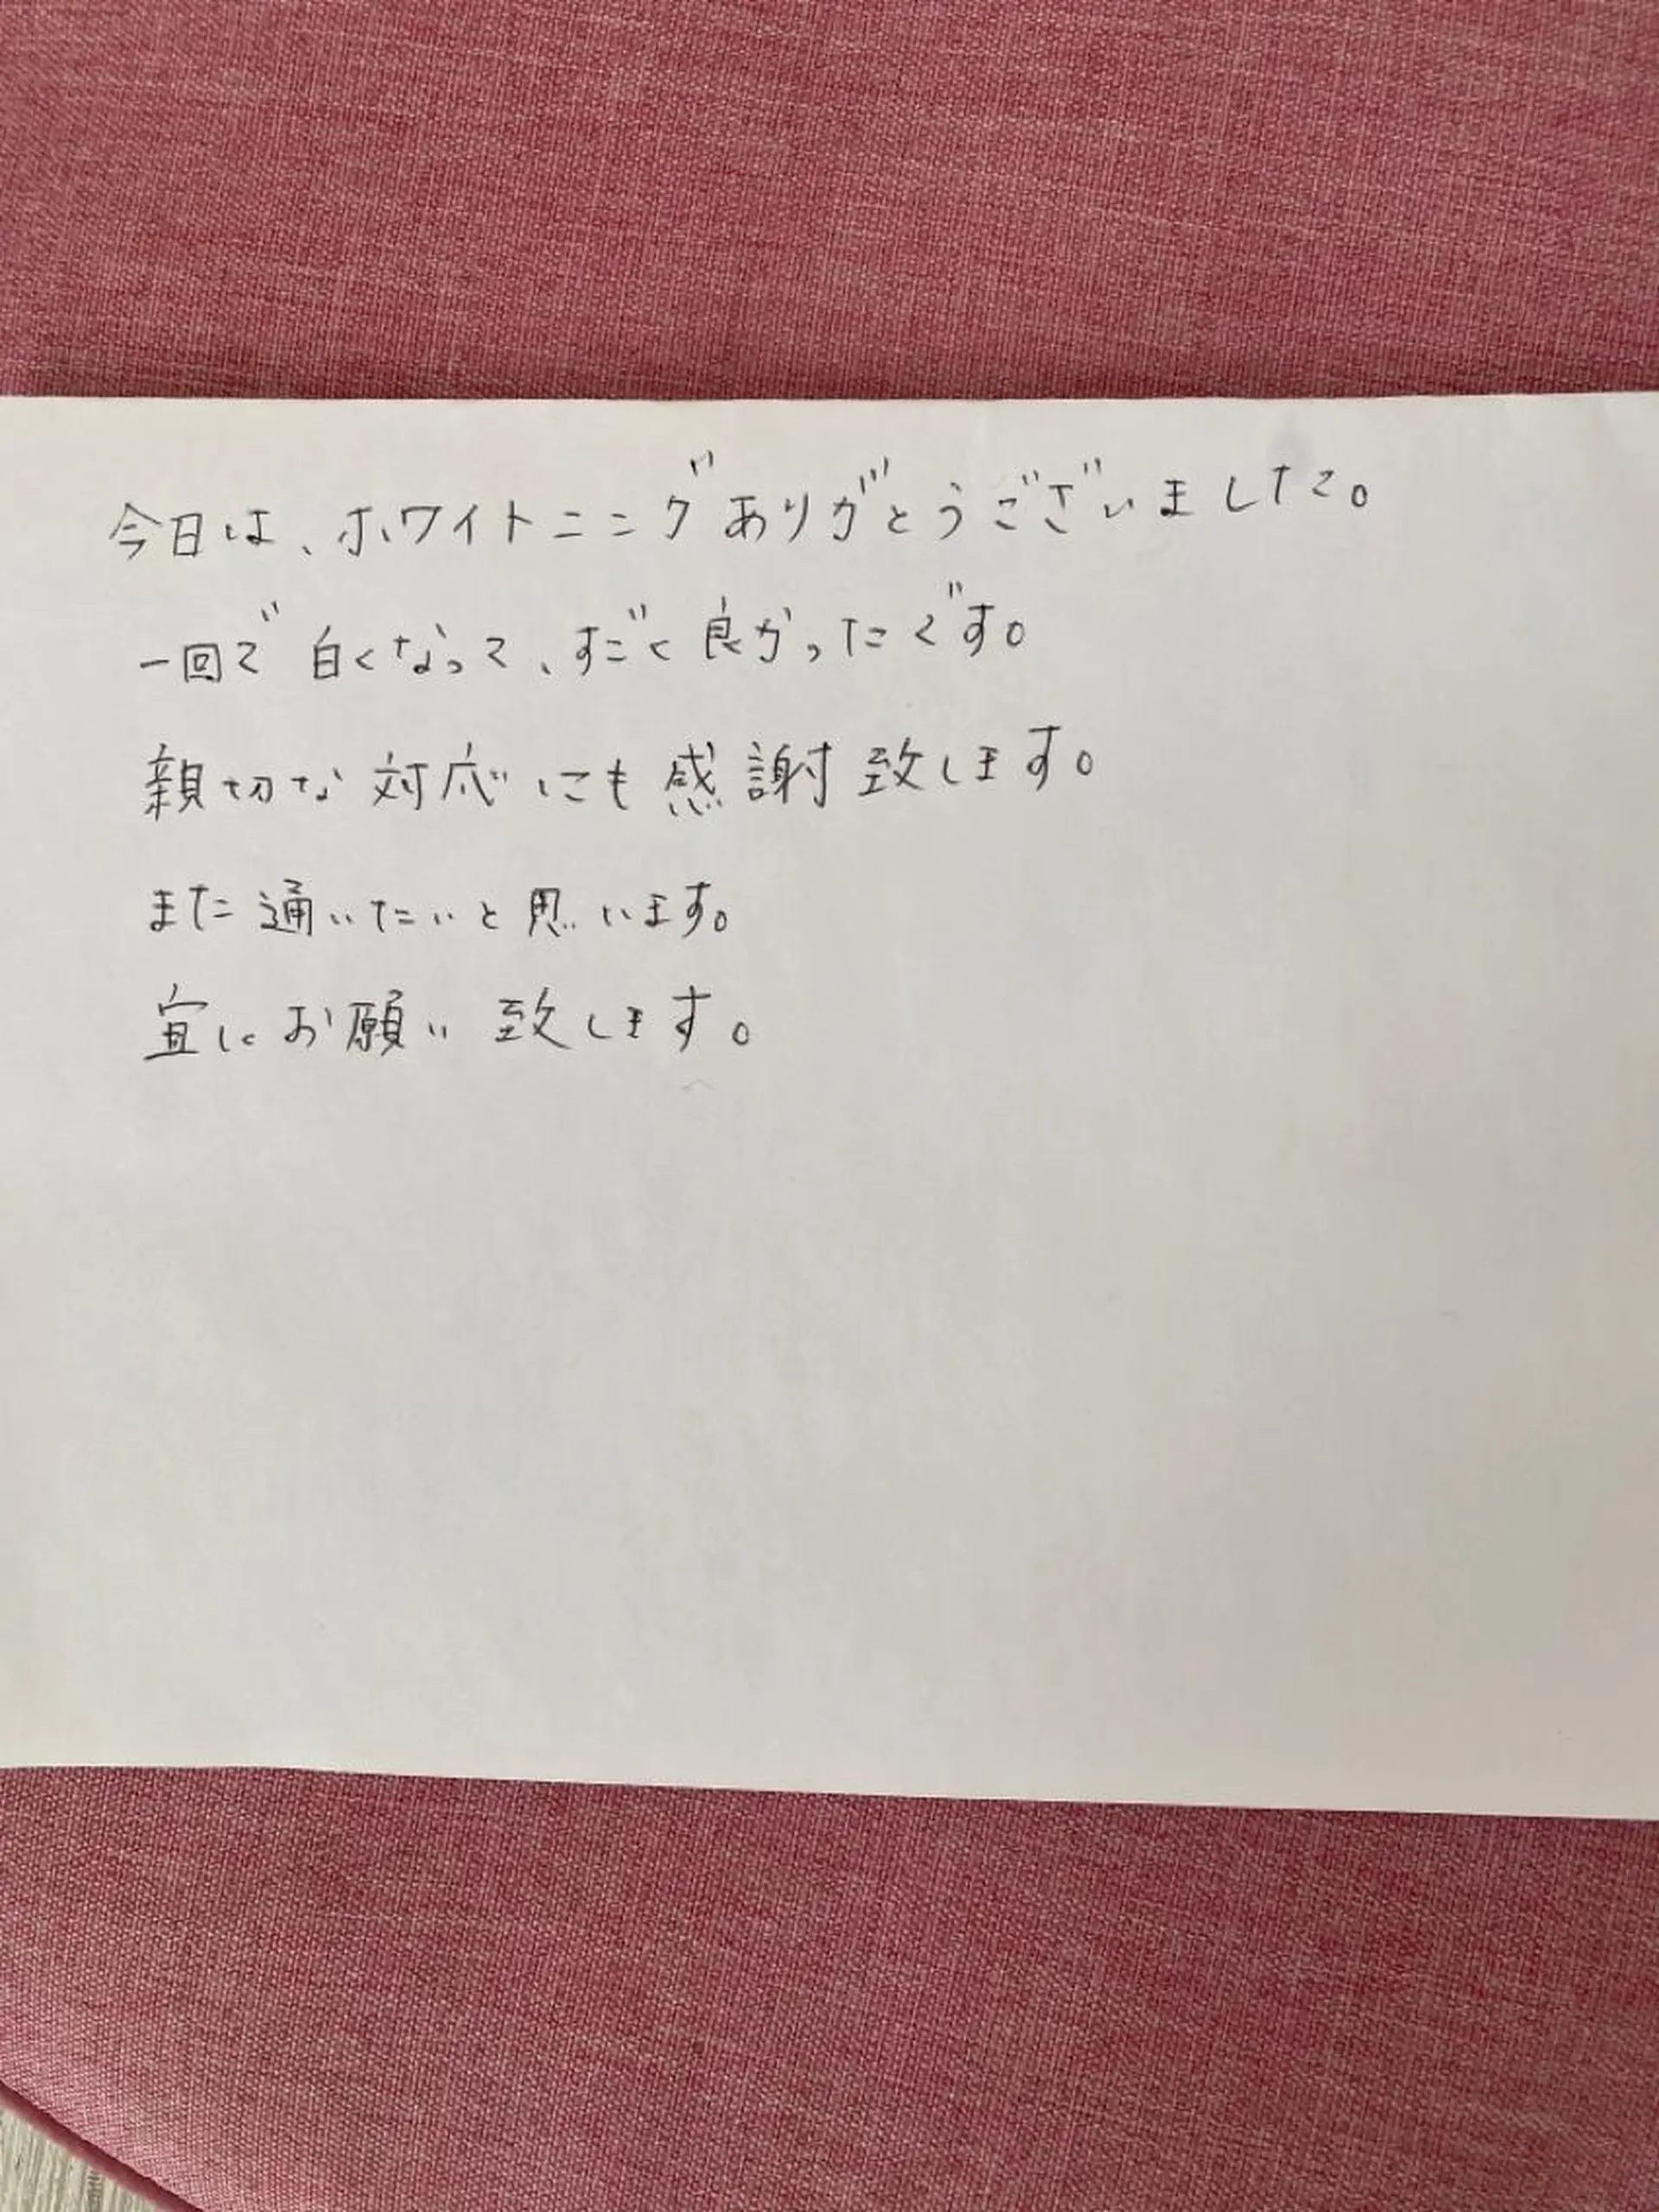 今日は、ホワイトニングありがとうございました。
一回で白くなって、すごく良かったです。
親切な対応にも感謝致します。
また通いたいと思います。
宜しくお願い致します。